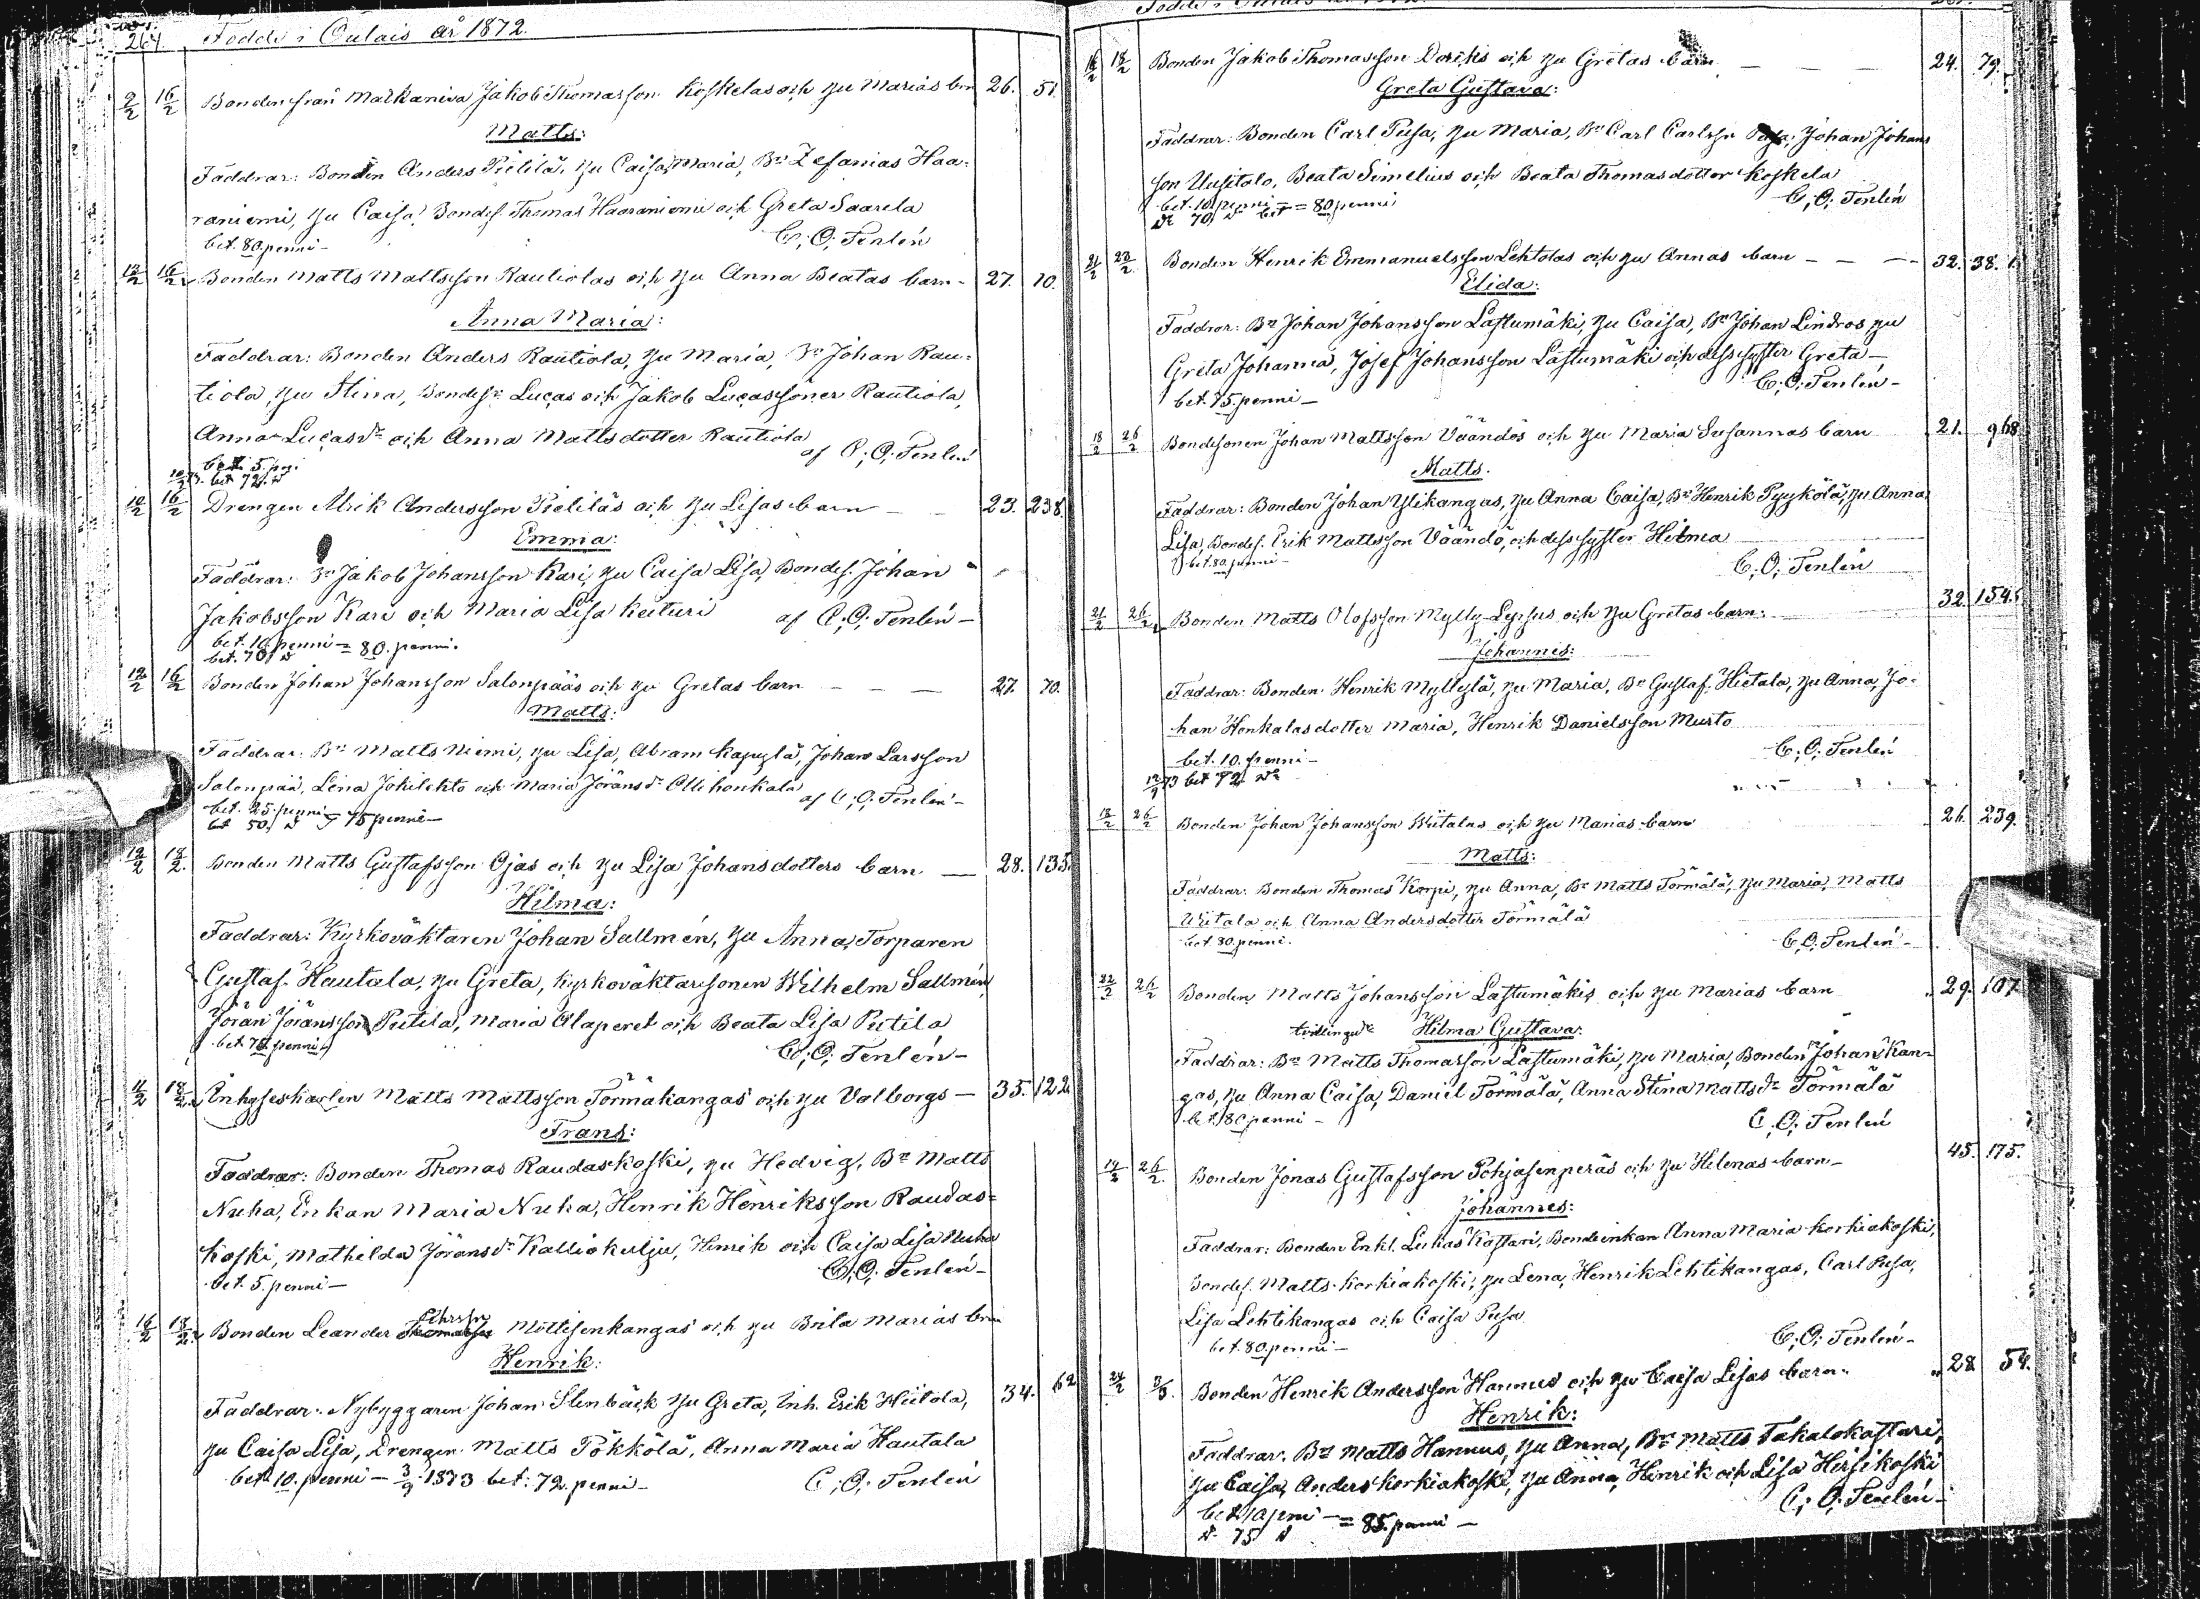 264 Födde i Oulais år 1872.
9/2 16/2 Bonden från Matkaniva Jakob Thomasson Koskelas och hu Marias brn 26. 51.
Matts:
Faddrar: Bonden Anders Pielilä, hu Caisa Maria, Bn Zefanias Haa-
raniemi, hu Caisa, Bondes. Thomas Haaraniemi och Greta Saarela
bet. 80 penni - C. O. Tenlén
12/2 16/2 Bonden Matts Mattsson Rautiolas och hu Anna Beatas barn - 27. 10.
Anna Maria:
Faddrar: Bonden Anders Rautiola, hu Maria, Bn Johan Rau-
tiola, hu Stina, Bondesr Lucas och Jakob Lucassöner Rautiola,
Anna Lucasdr och Anna Mattsdotter Rautiola
bet. 5. pni. af C. O. Tenlén
73. bet 72. d
12/2 16/2 Drengen Mick Andersson Pieliläs och hu Lisas barn - - 23. 238.
Emma:
Faddrar: Bn Jakob Johansson Kari, hu Caisa Lisa, Bondes. Johan
Jakobsson Kari och Maria Lisa Keituri af C. O. Tenlén -
bet. 10 penni = 80. penni.
bet. 70 d
12/2 16/2 Bonden Johan Johansson Salonpääs och hu Gretas barn - - - 27. 70.
Matts:
Faddrar: Bn Matts Niemi, hu Lisa, Abram Kapyla, Johan Larsson
Salonpää, Lena Jokilehto och Maria Jöransdr Ollihonkala
bet. 25 penni = 75 penni - af C. O. Tenlén -
bet 50 d
12/2 18/2 Bonden Matts Gustafsson Ojas och hu Lisa Johansdotters barn - 28. 135.
Hilma:
Faddrar: Kyrkoväktaren Johan Sallmén, hu Anna, Torparen
Gustaf Hautala, hu Greta, Kyrkoväktaresonen Wilhelm Sallmén,
Jöran Jöransson Putila, Maria Alaperet och Beata Lisa Putila
bet. 70 penni C. O. Tenlén -
11/2 18/2 Inhyseskarlen Matts Mattsson Törmäkangas och hu Valborgs - 35. 122.
Frans:
Faddrar: Bonden Thomas Raudaskoski, hu Hedvig, Bn Matts
Nuha, Enkan Maria Nuha, Henrik Henriksson Raudas-
koski, Mathilda Jöransdr Kalliokulju, Henrik och Caisa Lisa Nuha
bet. 5. penni - C. O. Tenlén -
16/2 18/2 Bonden Leander Möttisenkangas och hu Brita Marias brn
Henrik:
Faddrar: Nybyggaren Johan Stenbäck hu Greta, Inh. Erik Hietola, 34. 62
hu Caisa Lisa, Drengen Matts Pökkölä, Anna Maria Hautala
bet 10. penni - 3/9 1873 bet: 72. penni - C. O. Tenlén
16/2 18/2 Bonden Jakob Thomasson Doriks och hu Gretas barn - - - 24. 79.
Greta Gustava:
Faddrar: Bonden Carl Pusa, hu Maria, Bn Carl Carlsn Pusa, Johan Johans
son Uusitalo, Beata Simelius och Beata Thomasdotter Koskela
bet. 10 penni = 80 penni C. O. Tenlén
d 70 d bet
21/2 23/2 Bonden Henrik Emmanuelsson Lehtolas och hu Annas barn - - - 32. 38.
Elida:
Faddrar: Bn Johan Johansson Lastumäki, hu Caisa, Bn Johan Lindros hu
Greta Johanna, Josef Johansson Lastumäki och dess syster Greta -
bet. 75. penni - C. O. Tenlén -
18/2 26/2 Bondesonen Johan Mattsson Väändös och hu Maria Susannas barn 21. 968
Matts.
Faddrar: Bonden Johan Ylikangas, hu Anna Caisa, Bn Henrik Pyykölä, hu Anna
Lisa, Bondes. Erik Mattsson Väändö, och dess syster Hilma
bet. 80. penni - C. O. Tenlén
21/2 26/2 Bonden Matts Olofsson Mylly-Lypsus och hu Gretas barn. 32. 154.
Johannes:
Faddrar: Bonden Henrik Myllylä, hu Maria, Bn Gustaf Hietala, hu Anna, Jo-
han Honkalas dotter Maria, Henrik Danielsson Musto
bet. 10. penni - C. O. Tenlén
73 bet 72 d
18/2 26/2 Bonden Johan Johansson Wiitalas och hu Marias barn 26. 239.
Matts:
Faddrar: Bonden Thomas Korpi, hu Anna, Bn Matts Törmälä, hu Maria, Matts
Wiitala och Anna Andersdotter Törmälä
bet 80 penni. C. O. Tenlén -
22/2 26/2 Bonden Matts Johansson Lastumäkis och hu Marias barn 29. 107
tvillingar Hilma Gustava:
Faddrar: Bn Matts Thomasson Lastumäki, hu Maria, Bonden Johan Kan-
gas, hu Anna Caisa, Daniel Törmälä, Anna Stina Mattsdr Törmälä
bet. 80 penni - C. O. Tenlén
14/2 26/2 Bonden Jonas Gustafsson Pohjasenperäs och hu Helenas barn - 45. 175.
Johannes:
Faddrar: Bonden Enkl. Lukas Kastari, Bondeenkan Anna Maria Korkiakoski,
Bondes. Matts Korkiakoski, hu Lena, Henrik Lehtikangas, Carl Pusa,
Lisa Lehtikangas och Caisa Pusa
bet. 80 penni - C. O. Tenlén -
24/2 3/3 Bonden Henrik Andersson Hannus och hu Caisa Lisas barn. 28 54.
Henrik:
Faddrar: Bn Matts Hannus, hu Anna, Bn Matts Takalokastari,
hu Caisa, Anders Korkiakoski, hu Anna, Henrik och Lisa Hirsikoski
bet 10 peni = 85. panni - C. O. Tenlén -
d. 75 d